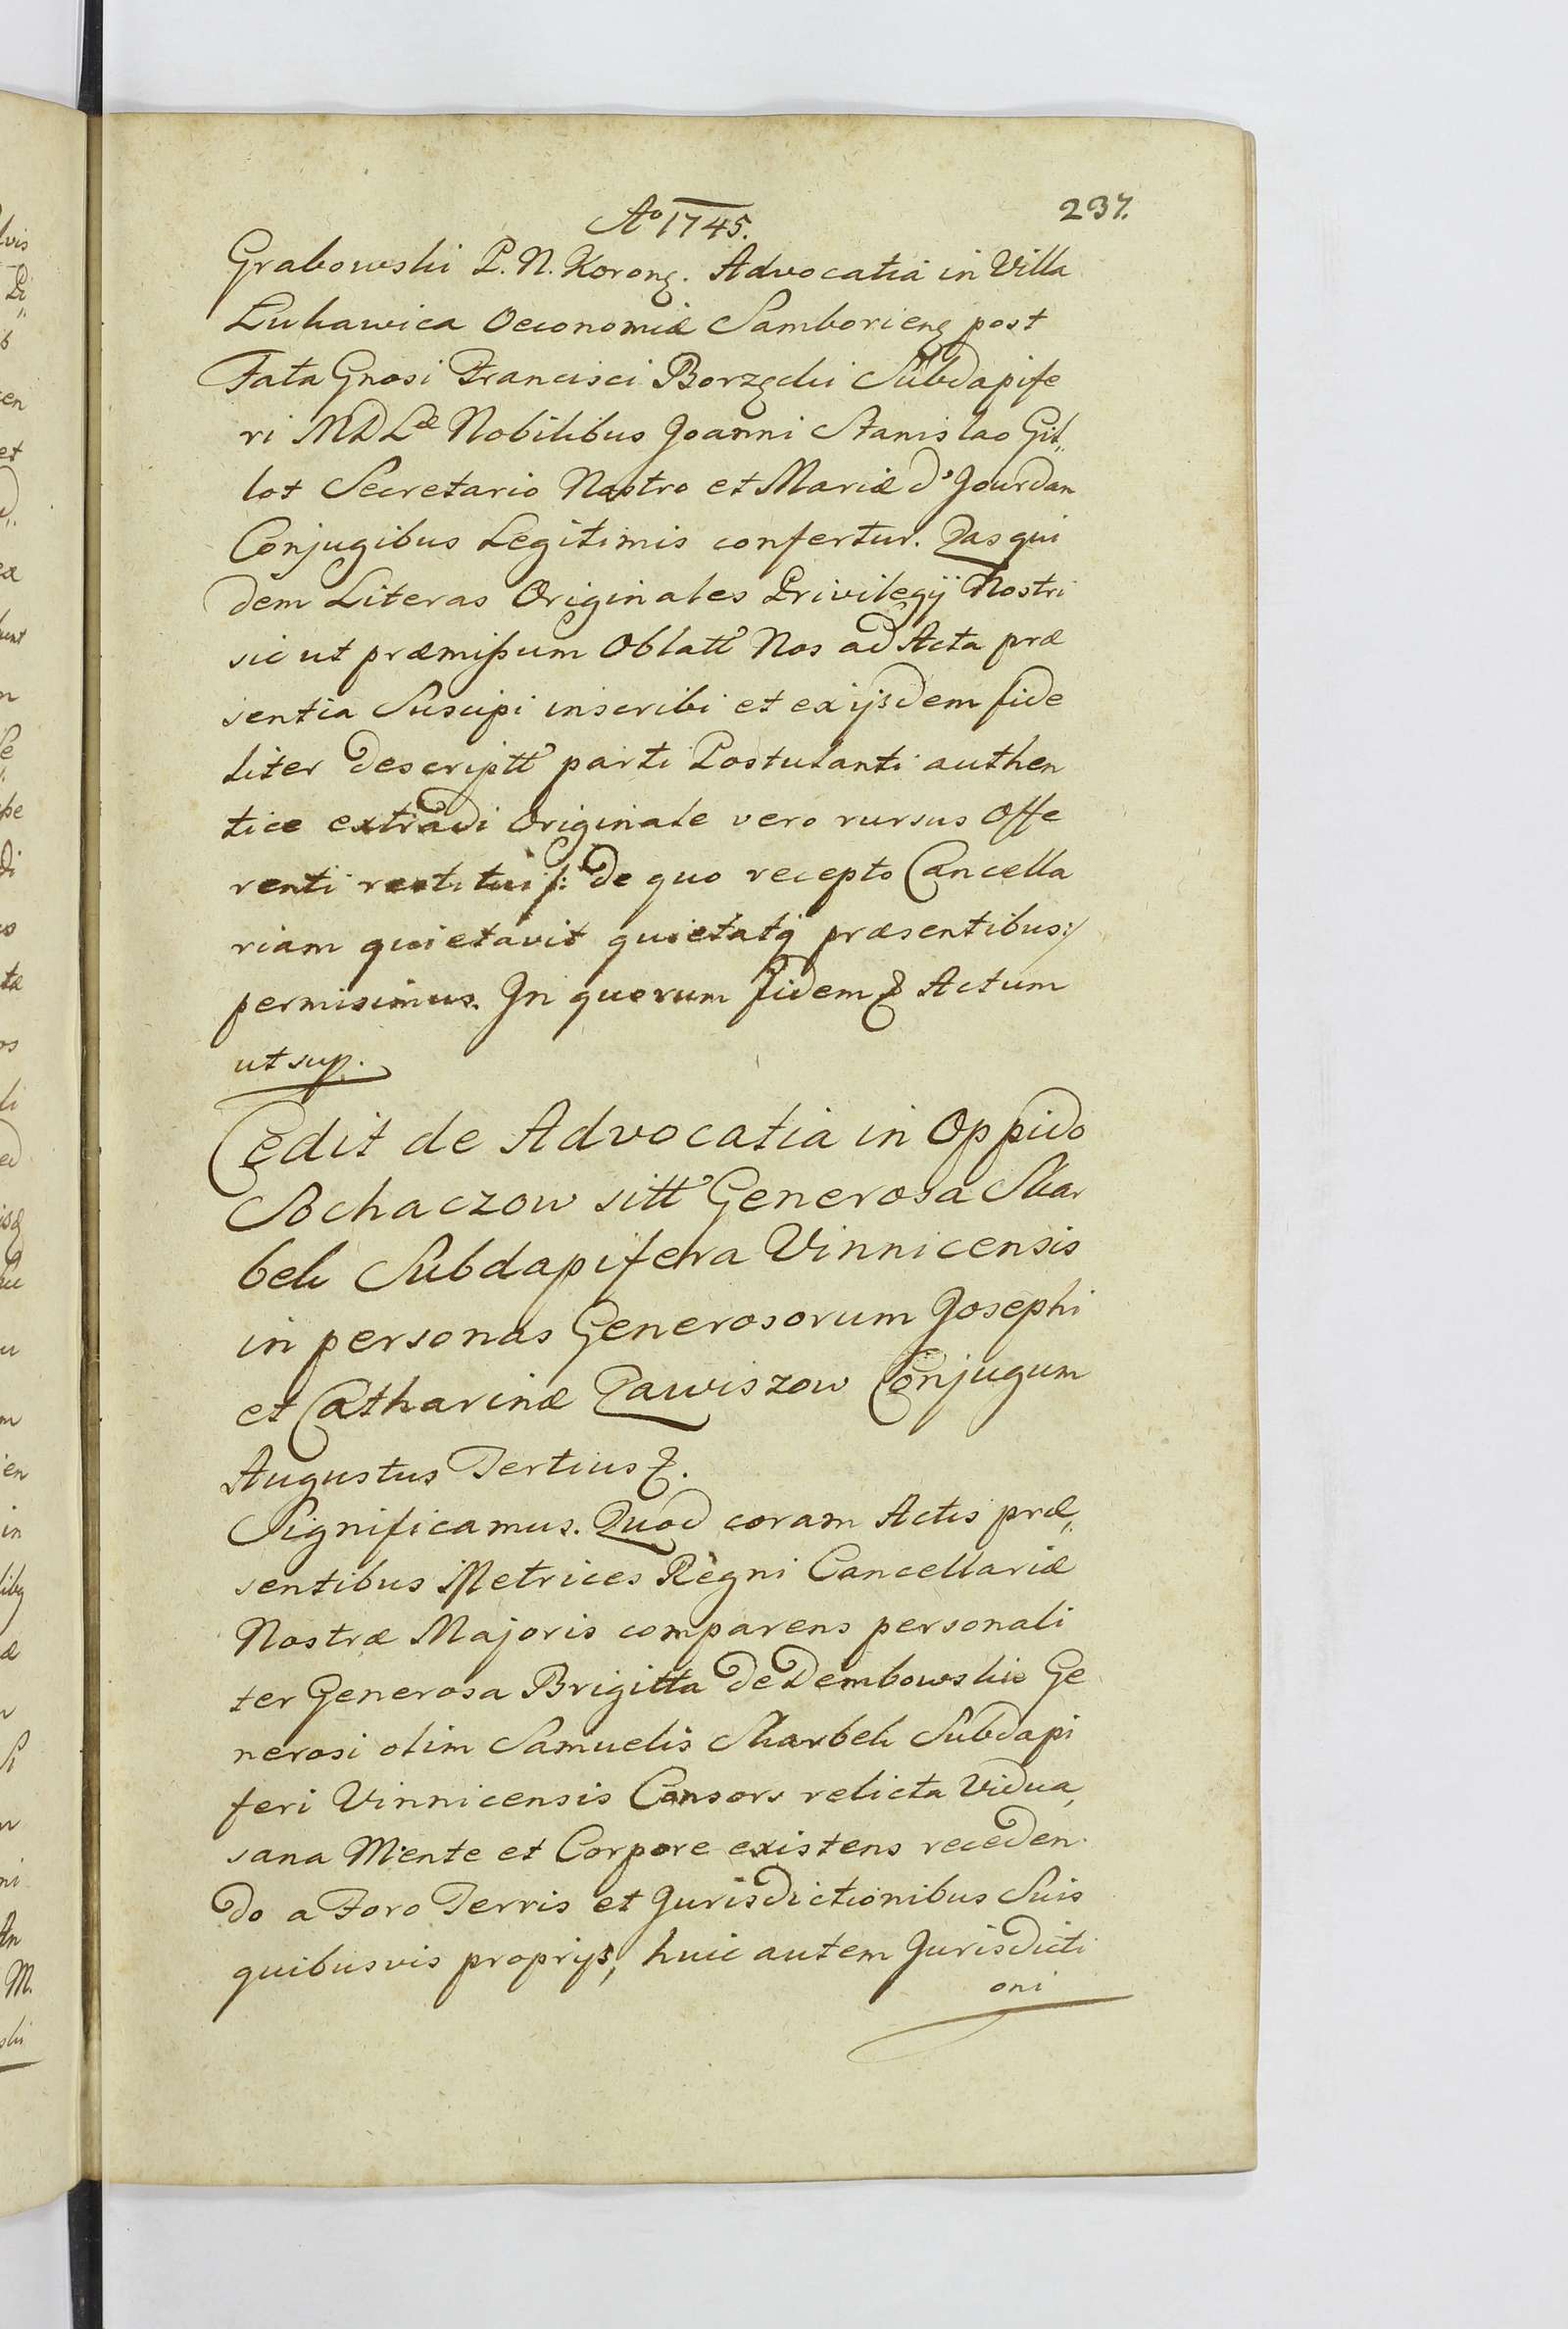 Aº 1745.
237.
Grabowski P. N. Koronę. Advocatia in Villa
Lukawica Oeconomiæ Samborieng post
Fata Gnosi Francisci Borzęcki Subdapife
ri MDLæ Nobilibus Joanni Stanislao Gil„
lot Secretario Nostro et Mariæ d'Jourdan
Conjugibus Legitimis confertur. Quas qui
dem Literas Originales Privilegij Nostri
sic ut præmissum Oblatt Nos ad Acta præ
sentia Suscipi inscribi et ex ijsdem fide
liter descriptt parti Postulanti authen
tice extradi Originale vero rursus Offe
renti restitui /: de quo recepto Cancella
riam quietavit quietatq præsentibus :/
permisimus. In quorum fidem & Actum
ut sup.
Cedit de Advocatia in Oppido
Sochaczow sitt Generosa Skar
bek Subdapifera Vinnicensis
in personas Generosorum Josephi
et Catharinæ Zawiszow Conjugum
Augustus Tertius &.
Significamus. Quod coram Actis præ„
sentibus Metrices Regni Cancellariæ
Nostræ Majoris comparens personali
ter Generosa Brigitta de Dembowskie Ge
nerosi olim Samuelis Skarbek Subdapi
feri Vinnicensis Consors relicta Vidua,
sana Mente et Corpore existens receden
do a Foro Terris et Jurisdictionibus Suis
quibusvis proprijs, huic autem Jurisdicti
oni